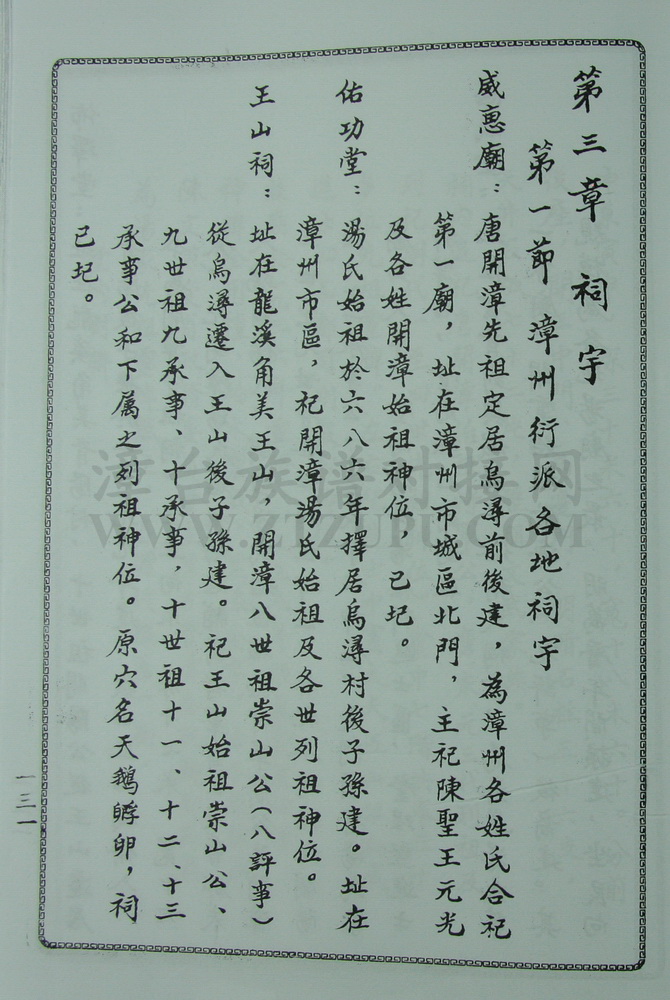 第三章 祠宇
第一節 漳州衍派各地祠宇
威惠廟：唐開漳先祖定居烏潯前後建，為漳州各姓氏合祀
第一廟，址在漳州市城區北門，主祀陳聖王元光
及各姓開漳始祖神位，已圮。
佑功堂：湯氏始祖於六八六年擇居烏潯村後子孫建。址在
漳州市區，祀開漳湯氏始祖及各世列祖神位。
王山祠：址在龍溪角美王山，開漳八世祖崇山公（八評事）
從烏潯遷入王山後子孫建。祀王山始祖崇山公、
九世祖九承事、十承事，十世祖十一、十二、十三
承事公和下属之列祖神位。原穴名天鵝孵卵，祠
已圮。
一三一
漳台族谱对接网
WWW.ZTZUPU.COM